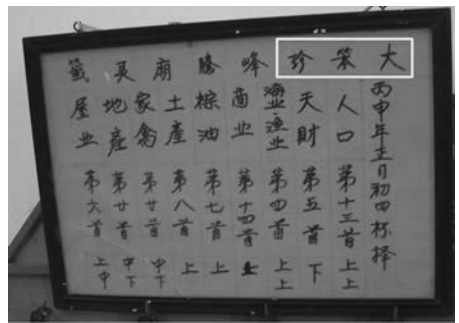 大笨珍峰騰廟灵籤
丙申年正月初四杯择
人口 第十三首 上上
天財 第五首 下
渔业 第四首 上上
商业 第十四首 上
棕油 第七首 上
土產 第八首 上
家禽 第廿首 中下
地產 第廿首 中下
屋业 第六首 上中